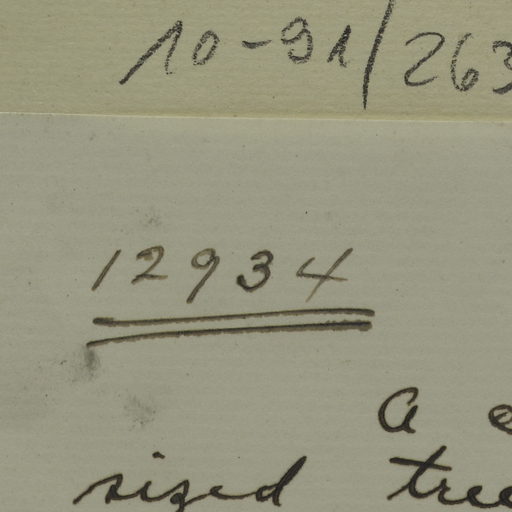 10-91/263
12934
a
sized tree